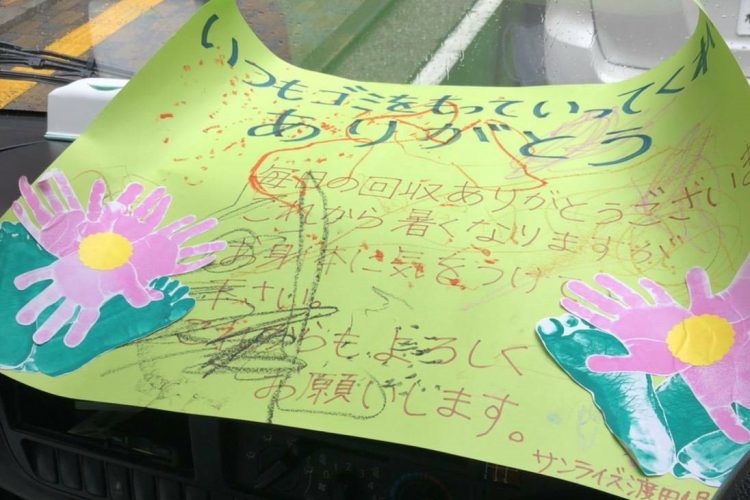 いつもゴミをもっていってくれ
ありがとう
毎日の回収ありがとうござい
これから暑くなりますが
お身体に気をつけ
さい。
これからもよろしく
お願いします。
サンライズ渡田